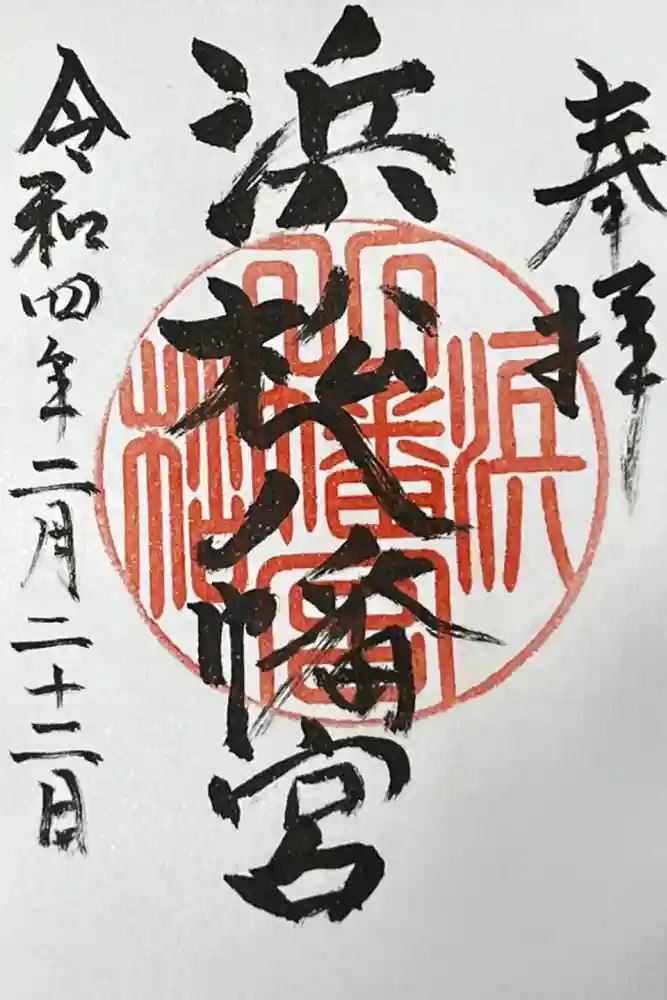 奉拝
浜松八幡宮
令和四年二月二十二日
浜松八幡宮